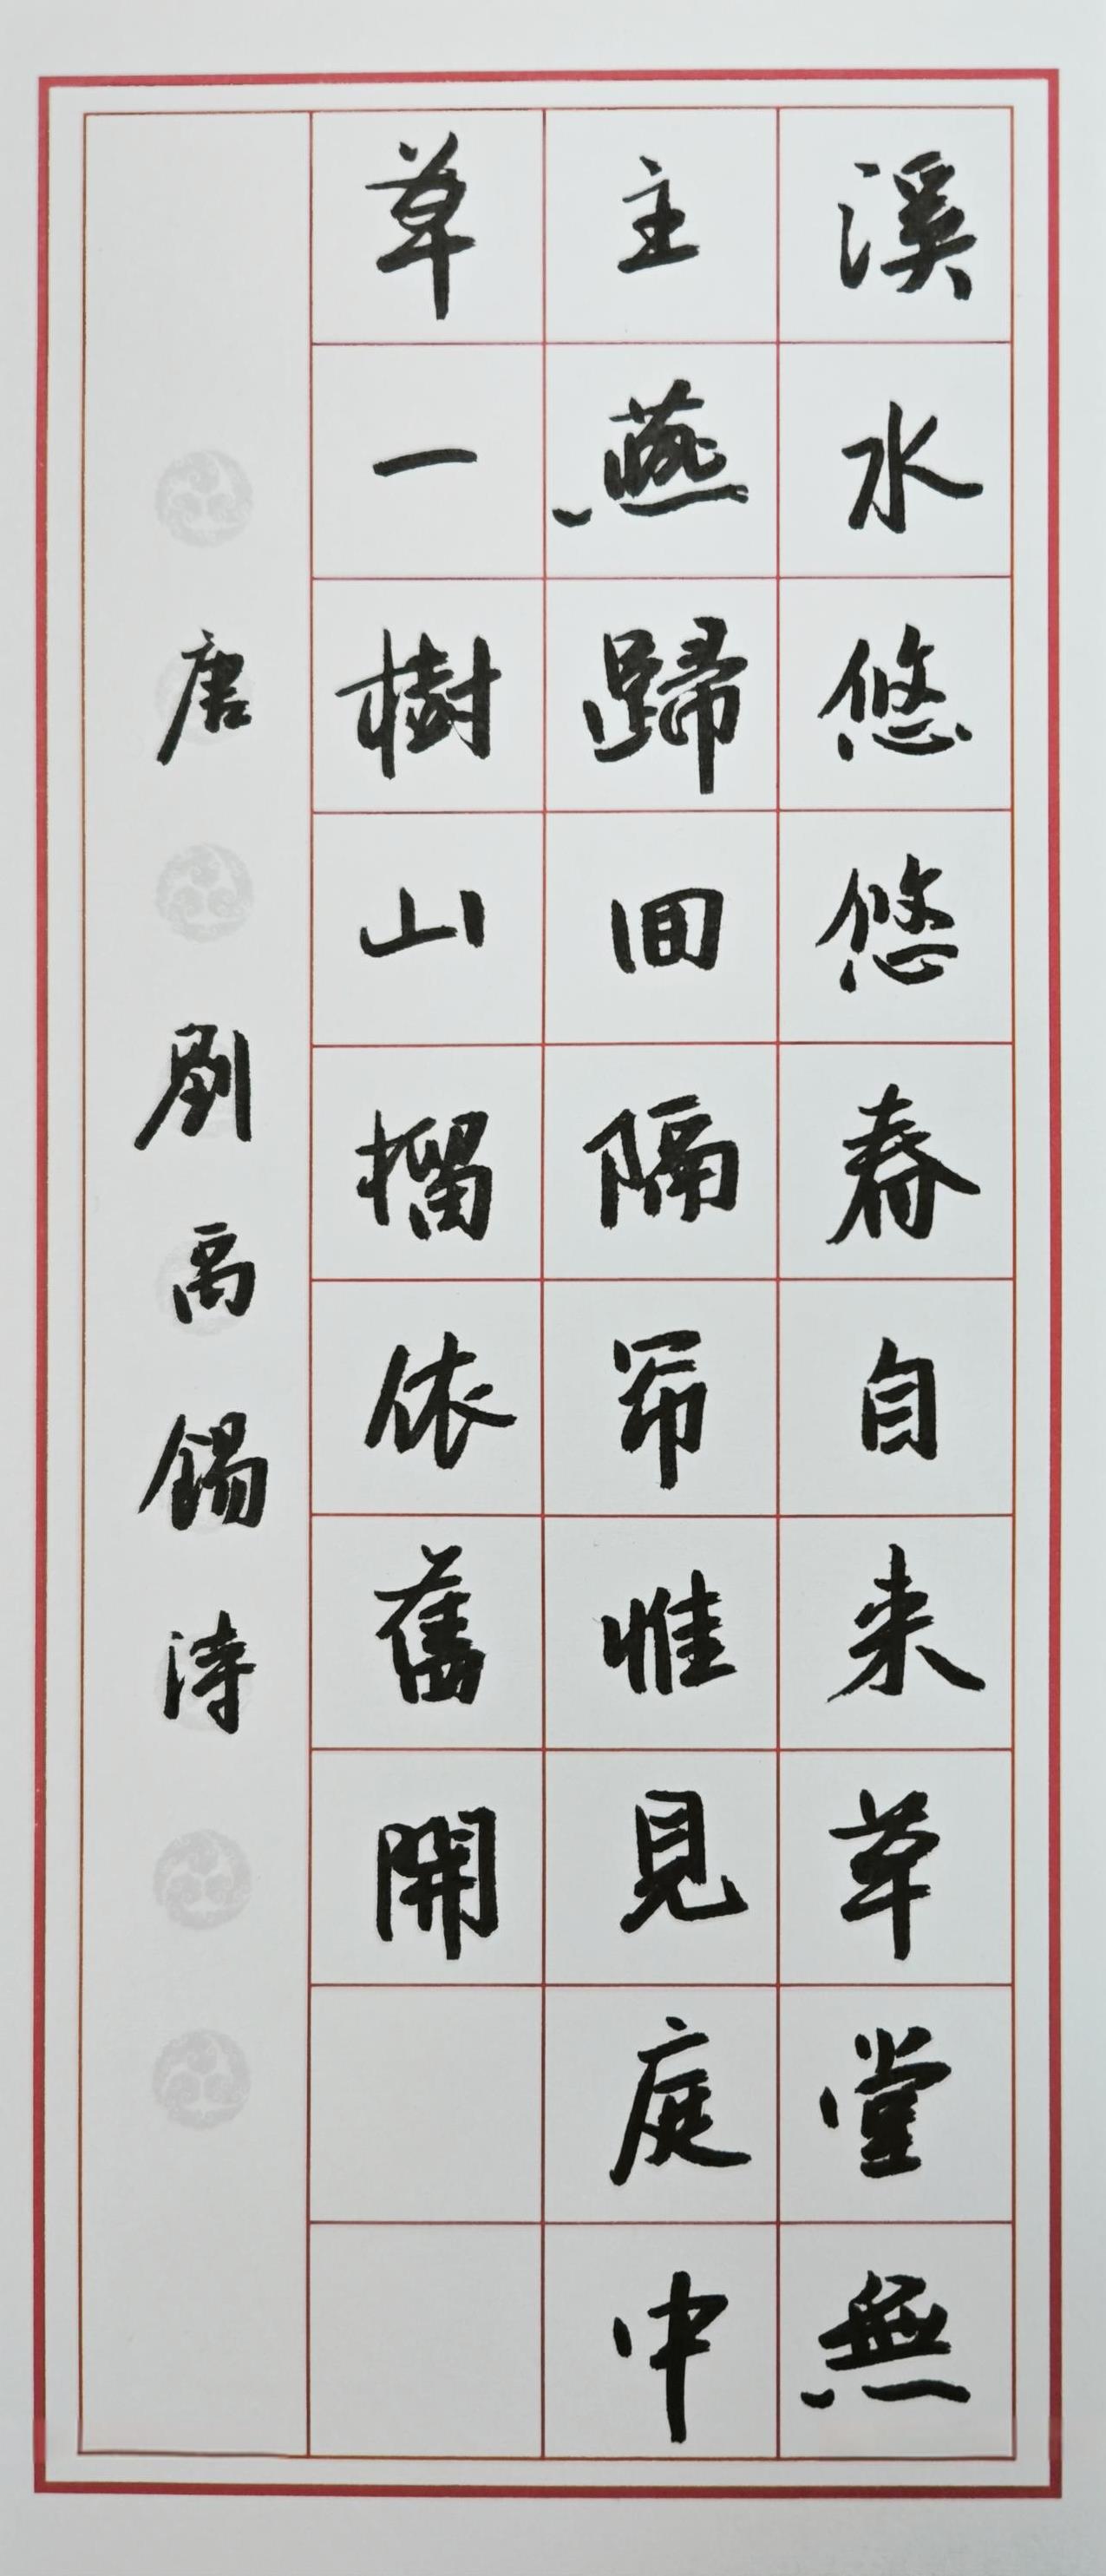 溪水悠悠春自来草堂無
主燕歸回隔帘惟見庭中
草一樹山榴依舊開
唐劉禹錫詩